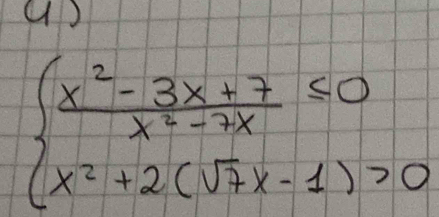 4)
x² - 3x + 7 / x² - 7x ≤ 0
x² + 2(√7x - 1) > 0